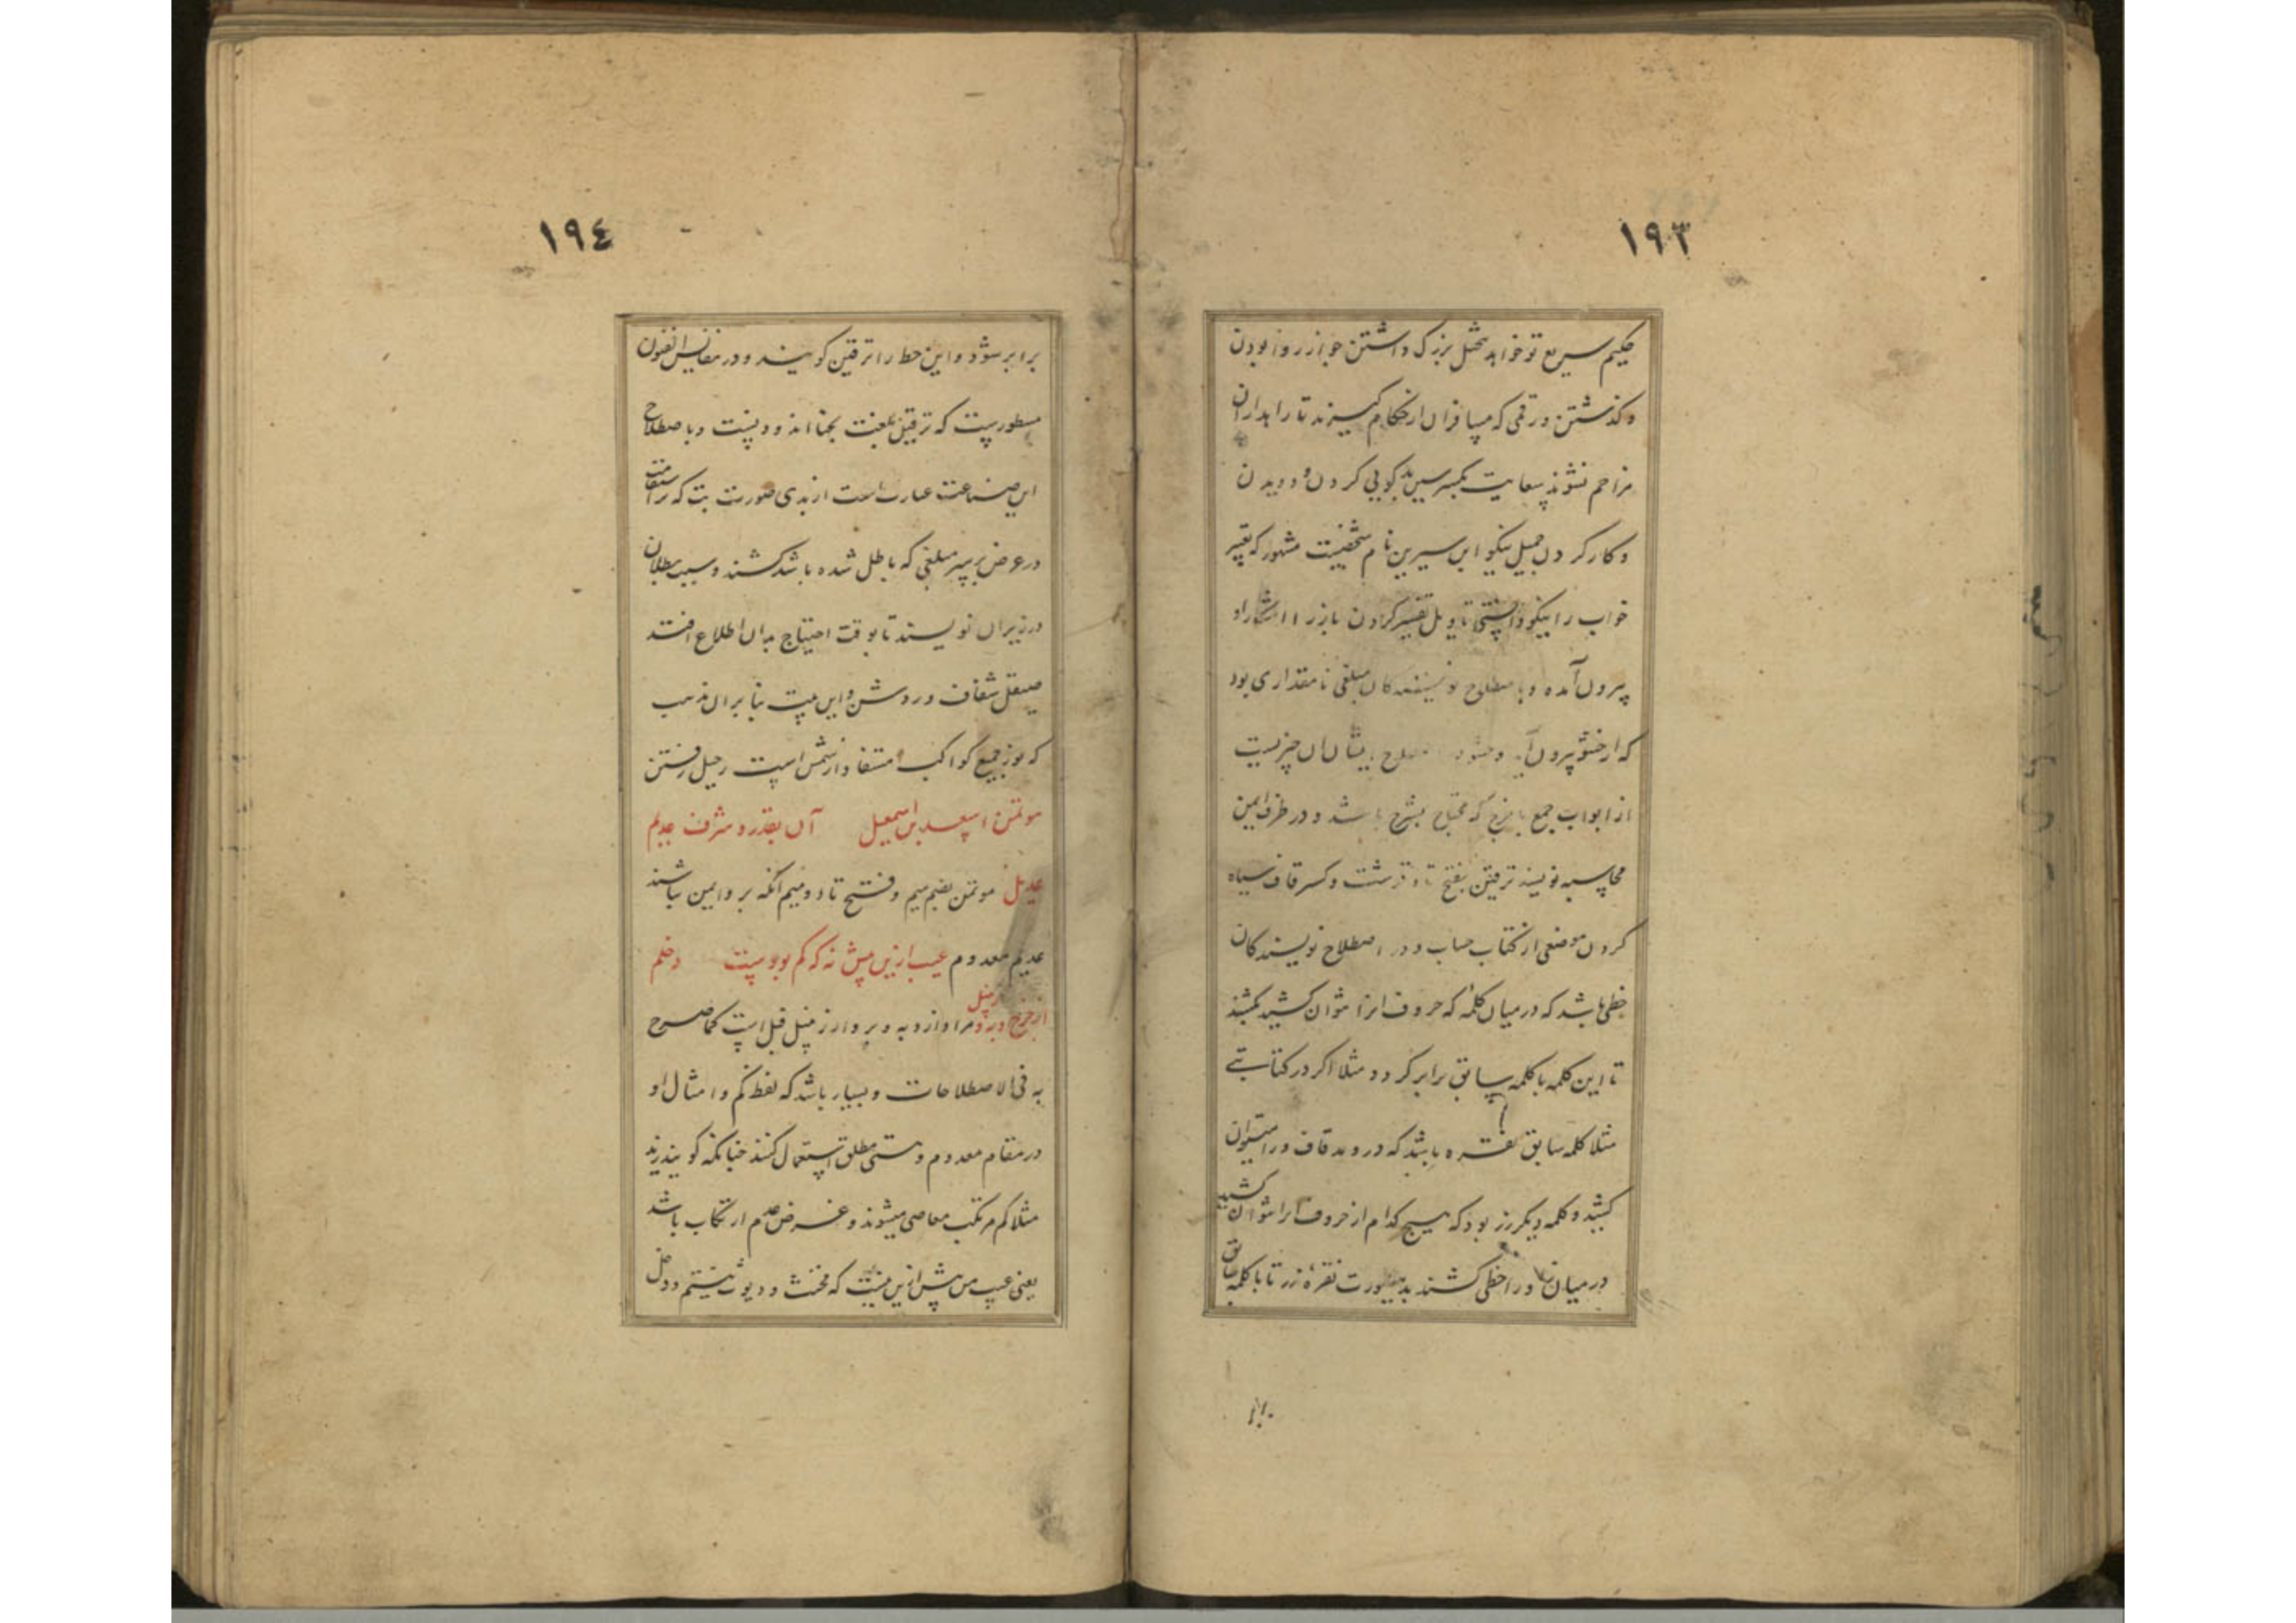 ١٩٣
حکیم سریع تو خواهد تبجیل بزرک داشتن جواز روا بودن
و کذشتن و رقمی که مسافران از حکام کیرند تا راهداران
مزاحم نشوند سعایت بکسر سین بدکویی کردن و دویدن
و کار کردن جمیل نیکو ابن سیرین نام شخصیست مشهور که تعبیر
خواب را نیکو دانستی تاویل تفسیر کردن بارز
بیرون آمده و باصطلاح نویسندکان مبلغی تا مقداری بود
که از حشو بیرون آید و حشو در اصطلاح ایشان آن چیزیست
از ابواب جمع یا خرج که محتاج بشرح باشد و در طرف ایمن
محاسبه نویسند ترقین بفتح تاء قرشت و کسر قاف سیاه
کردن موضعی از کتاب حساب و در اصطلاح نویسندکان
خطی باشد که در میان کلمهٔ که حروف انرا نتوان کشید بکشند
تا این کلمه با کلمه سابق برابر کردد مثلا اکر در کتابتے
مثلا کلمه سابق نقره باشد که در و مد قاف و را میتوان
کشید و کلمه دیکر زر بود که هیچ کدام از حروف انرا نتوان کشید
در میان زا و را خطی کشند بدینصورت نقرهٔ زر تا با کلمه سابق
١٩٤
برابر شود و این خط را ترقین کویند و در نفایس الفنون
مسطورست که ترقین بلغت بجنا اندودنست و باصطلاح
این صناعت عبارت است از مدی صورت بت که راستقامت
در عرض بر سر مبلغی که باطل شده باشد کشند و سبب بطلان
در زیر ان نویسند تا بوقت احتیاج بدان اطلاع افتد
صیقل شفاف و روشن و این بیت بنا بر ان مذهب
که نور جمیع کواکب مستفاد از شمس است رحیل رفتن
موتمن اسعد بن اسمعیل آن بقدر و شرف عدیم
عدیل موتمن بضم میم و فتح تا و دو میم انکه بر و ایمن باشند
عدیم معدوم عیب ازین بیش نه که کم بودست دخلم
از خرج و بر و مرا و از ده به و بر و از زمثل قبل است کما صرح
به فی الاصطلاحات و بسیار باشد که لفظ کم و امثال او
در مقام معدوم و نیستی مطلق استعمال کنند چنانکه کویند زید
مثلا کم مرتکب معاصی میشوند و غرض عدم ارتکاب باشد
یعنی عیب من بیش ازین نیست که مخنث و دیوث نیستم و دخل